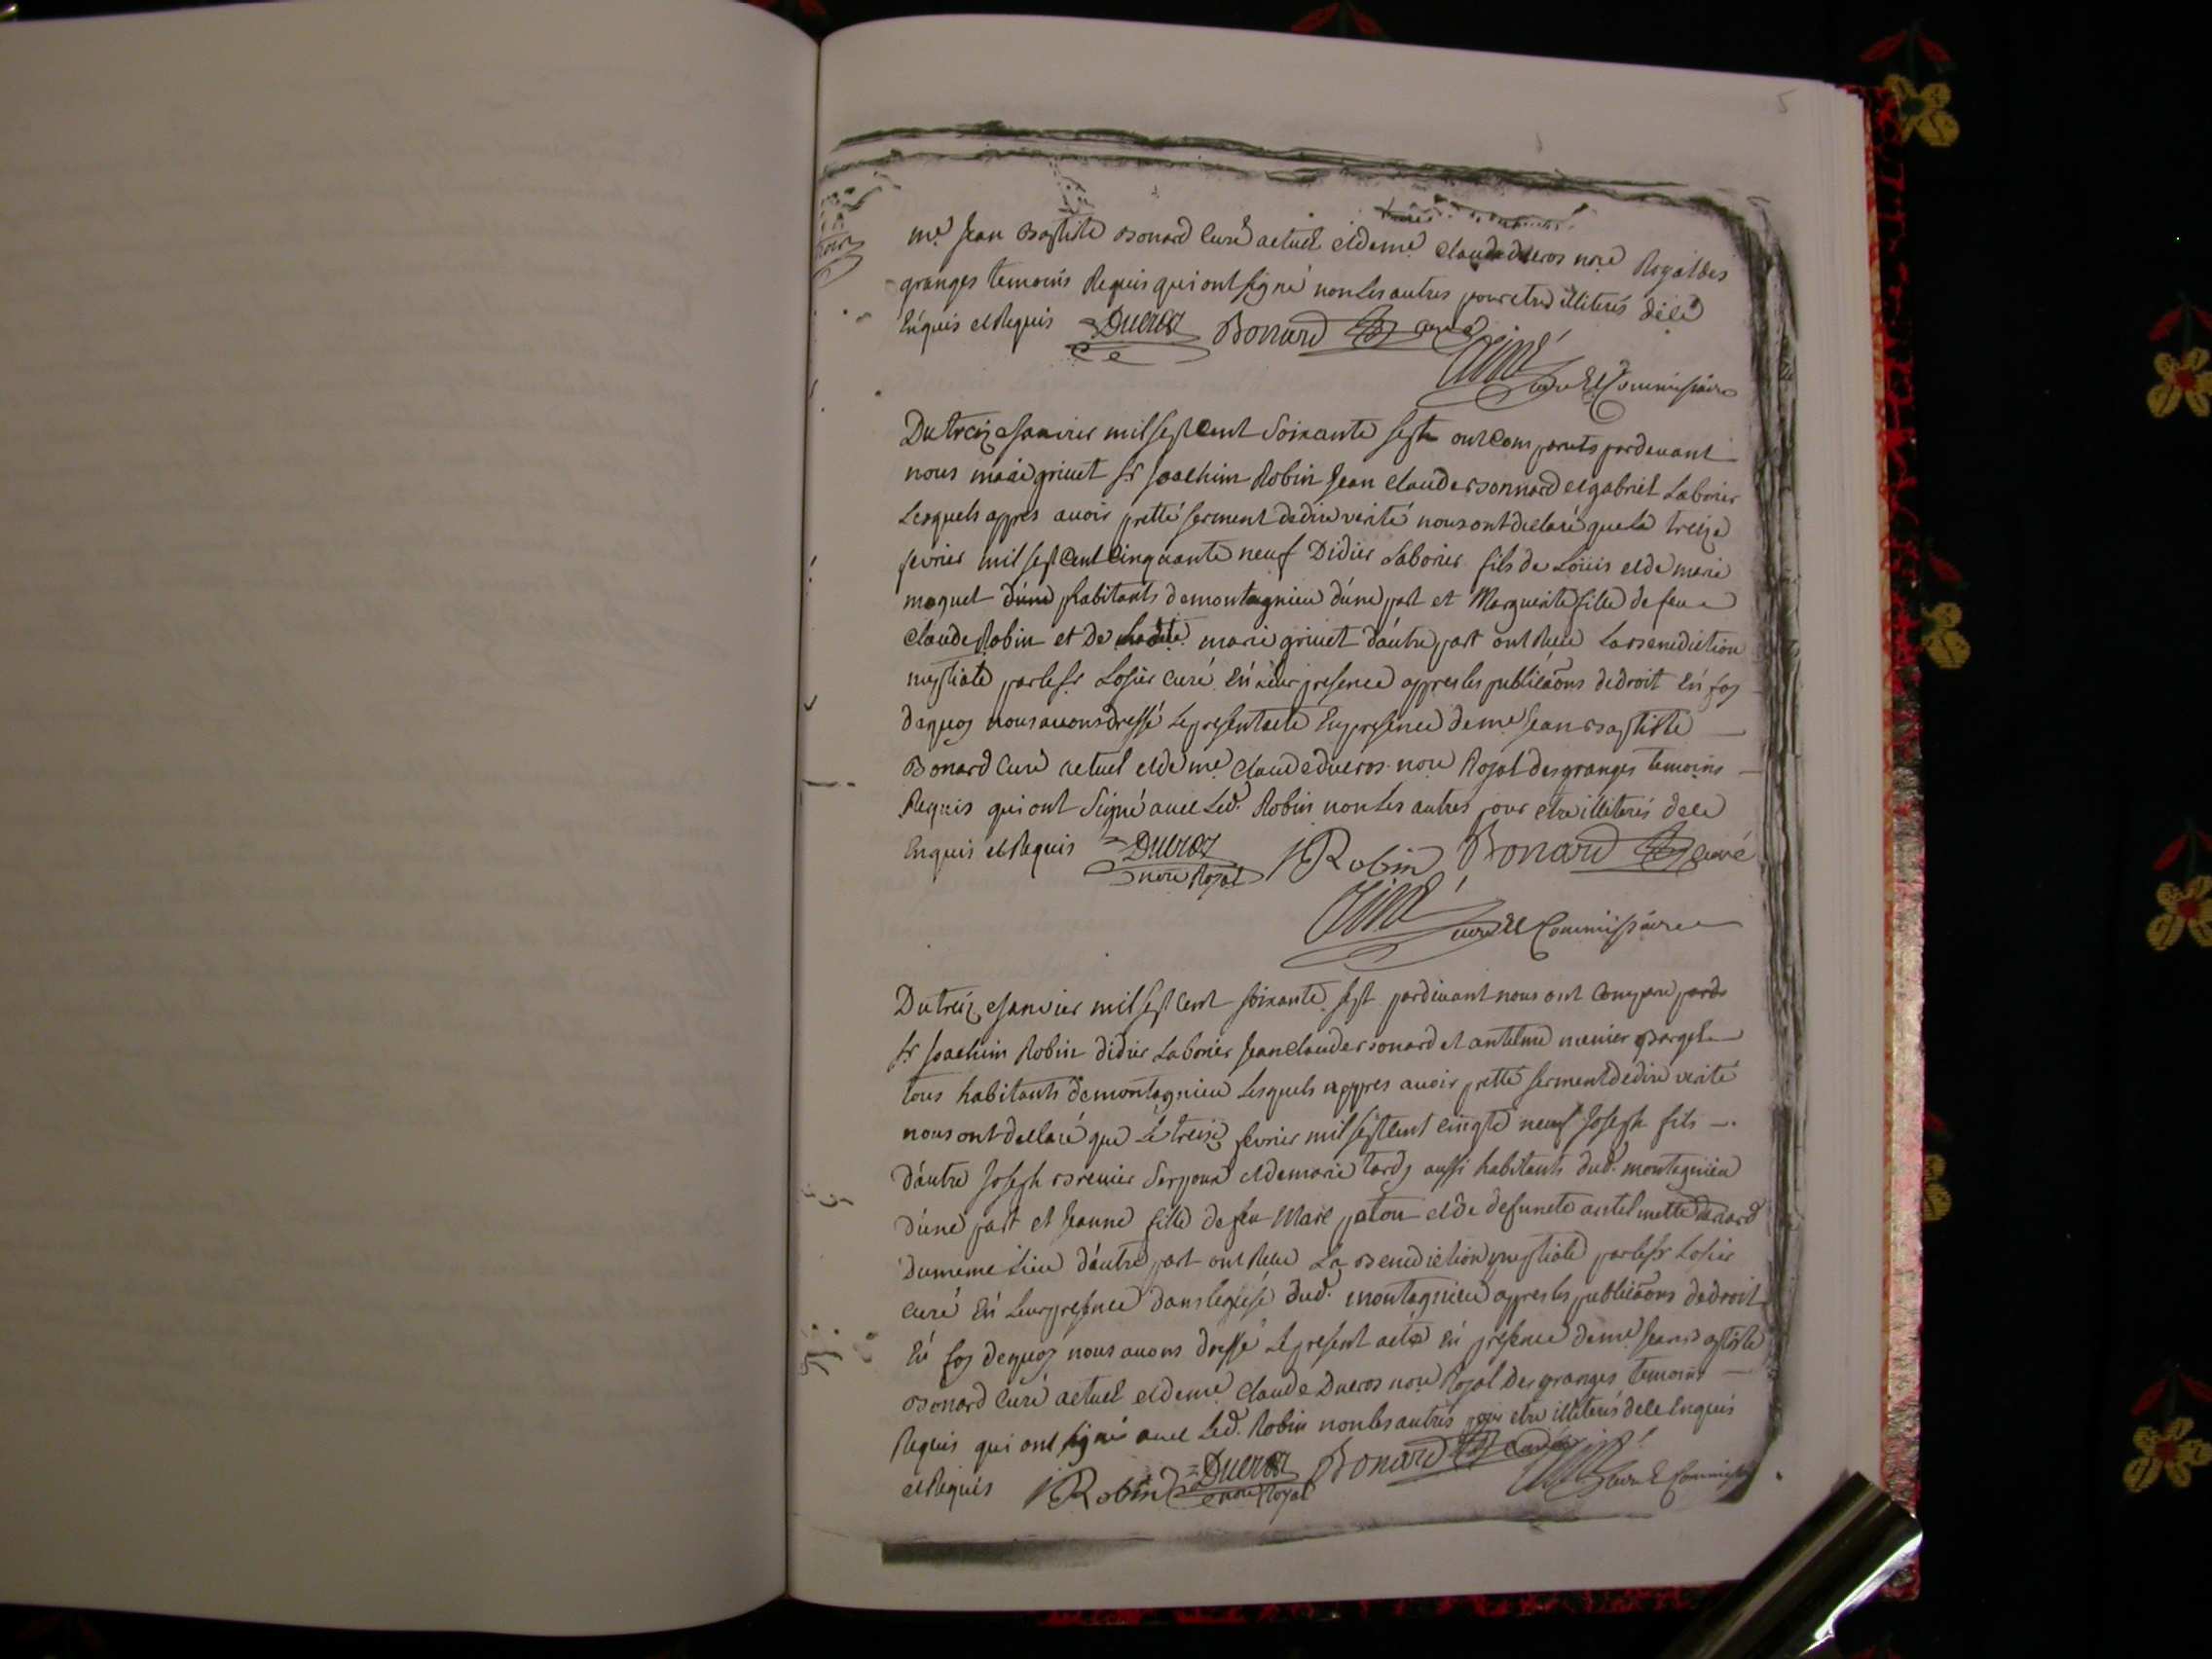 5
me Jean Baptiste Bonard Curé actuel et de me Claude ducros nore Royal des
granges temoins Requis qui ont signé non les autres pour etre illiterés de ce
Enquis et Requis Ducros Bonard curé
curé et Commissaire
Du treize Janvier mil sept Cent Soixante sept ont Comparuts pardevant
nous marie grinet sr Joachim Robin Jean Claude Bonnard et gabriel Laborier
Lesquels appres avoir pretté serment de dire verité nous ont declaré que le treize
fevrier mil sept Cent Cinquante neuf Didier Laborier fils de Loüis et de marie
moquet d'une habitants de montagnieu d'une part et Marguerite fille de feu
Claude Robin et De marie grinet d'autre part ont Receu La Benediction
nuptiale par le sr Losier curé En Leur presence appres les publicãons de droit En foy
de quoy nous avons dressé Le present acte En presence de me Jean Baptiste
Bonard Curé actuel et de me Claude ducros nore Royal des granges temoins
Requis qui ont Signé avec Led. Robin non Les autres pour etre illiterés de ce
Enquis et Requis Ducros nore Royal J Robin Bonard curé
curé et Commissaire
Du treize Janvier mil sept Cent soixante sept pardevant nous ont Comparu pard
sr Joachim Robin didier Laborier Jean Claude Bonard et antelme menier
tous habitants de montagnieu Lesquels appres avoir pretté serment de dire verité
nous ont declaré que Le treize fevrier mil sept Cent cinqte neuf Joseph fils
d'autre Joseph Brenier et de marie tardy aussi habitants dud. montagnieu
d'une part et Jeanne fille de feu Marc paton et de defuncte antelmette
du meme Lieu d'autre part ont Receu La Benediction nuptiale par le sr Losier
curé En Leur presence dans leglise dud. montagnieu appres les publicãons de droit
En foy de quoy nous avons dressé Le present acte En presence de me Jean Baptiste
Bonard Curé actuel et de me Claude Ducros nore Royal Des granges temoins
Requis qui ont signé avec Led. Robin non les autres pour etre illiterés de ce Enquis
et Requis J Robin Ducros nore Royal Bonard curé curé et Commiss